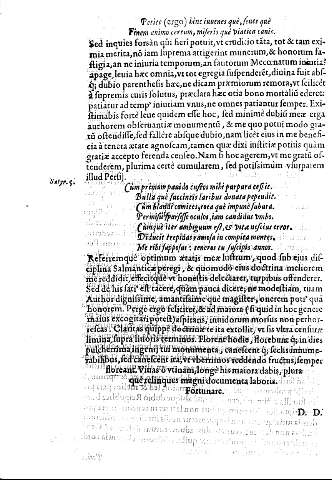 Petite (ergo) hinc iuuenes què, senes què
Finem animo certum, miseris què viatica canis.
Sed inquies forsan quì fieri potuit, vt eruditio tâta, tot & tam exi-
mia merita, nô iam suprema attigerint munerum, & honorum fa-
stigia, an ne iniuria temporum, an fautorum Mecœnatum iniuria?
apage, leuia hæc omnia, vt tot egregia suspenderêt, diuina fuit abs-
q; dubio parenthesis hæc, ne dicam præmiorum remora, vt scilicét
à supremis curis solutus, præclara hæc otia bono mortali ederêt:
patiatur ad temp' iniuriam vnus, ne omnes patiantur semper. Exi-
stimabis forté leue quidem esse hoc, sed minimè dubiũ meæ erga
authorem obseruantiæ monumentũ, & me quo potiũ modo gra-
tũ ostendisse, sed fallêre absque dubio, nam licèt eius in me benefi-
cia à tenera ætate agnoscam, tamen quæ dixi iustitiæ potiùs quàm
gratiæ accepto ferenda censeo. Nam si hoc agerem, vt me gratũ os-
tenderem, plurima certè cumularem, sed potissimùm vsurpatem
illud Persij.
Satyr. 5.
Cùm primum pauido custos mihi purpura cessit.
Bulla què succinctis laribus donata pependit.
Cùm blandi comites, tota què impune subura.
Permisit sparsisse oculos, iam candidus vmbo.
Cùmque iter ambiguum est, et vitæ nescius error.
Diducit trepidas ramosa in compita mentes,
Me tibi supposui: teneros tu suscipis annos.
Referremque optimum ætatis meæ lustrum, quod sub eius dis-
ciplina Salmanticæ peregi, & quomodò eius doctrina meliorem
me reddidit, effecitque vt honestis delectarer, turpibus offenderer.
Sed de his satis est tacere, quàm pauca dicere, ne modestiam, tuam
Author dignissime, amantissime què magister, onerem potiùs quã
honorem. Perge ergo feliciter, & ad maiora (si quid in hoc genere
maius excogitari potest) aspira, inuidorum morsus non perhor-
rescas. Clarius quippe doctrinæ te ita extollit, vt sis vltra centurie
limina, supra liuoris terminos. Florent hodie, florebunt q; in dies
pulcherrima ingenij tui monumenta, canescent q; seclis innume-
rabilibus, sed canescent ita, vt vberrimos reddendo fructus, semper
floreant. Viue ò vtinam, longe his maiora dabis, plura
què relinques magni documenta laboris.
Fortunare.
D. D.